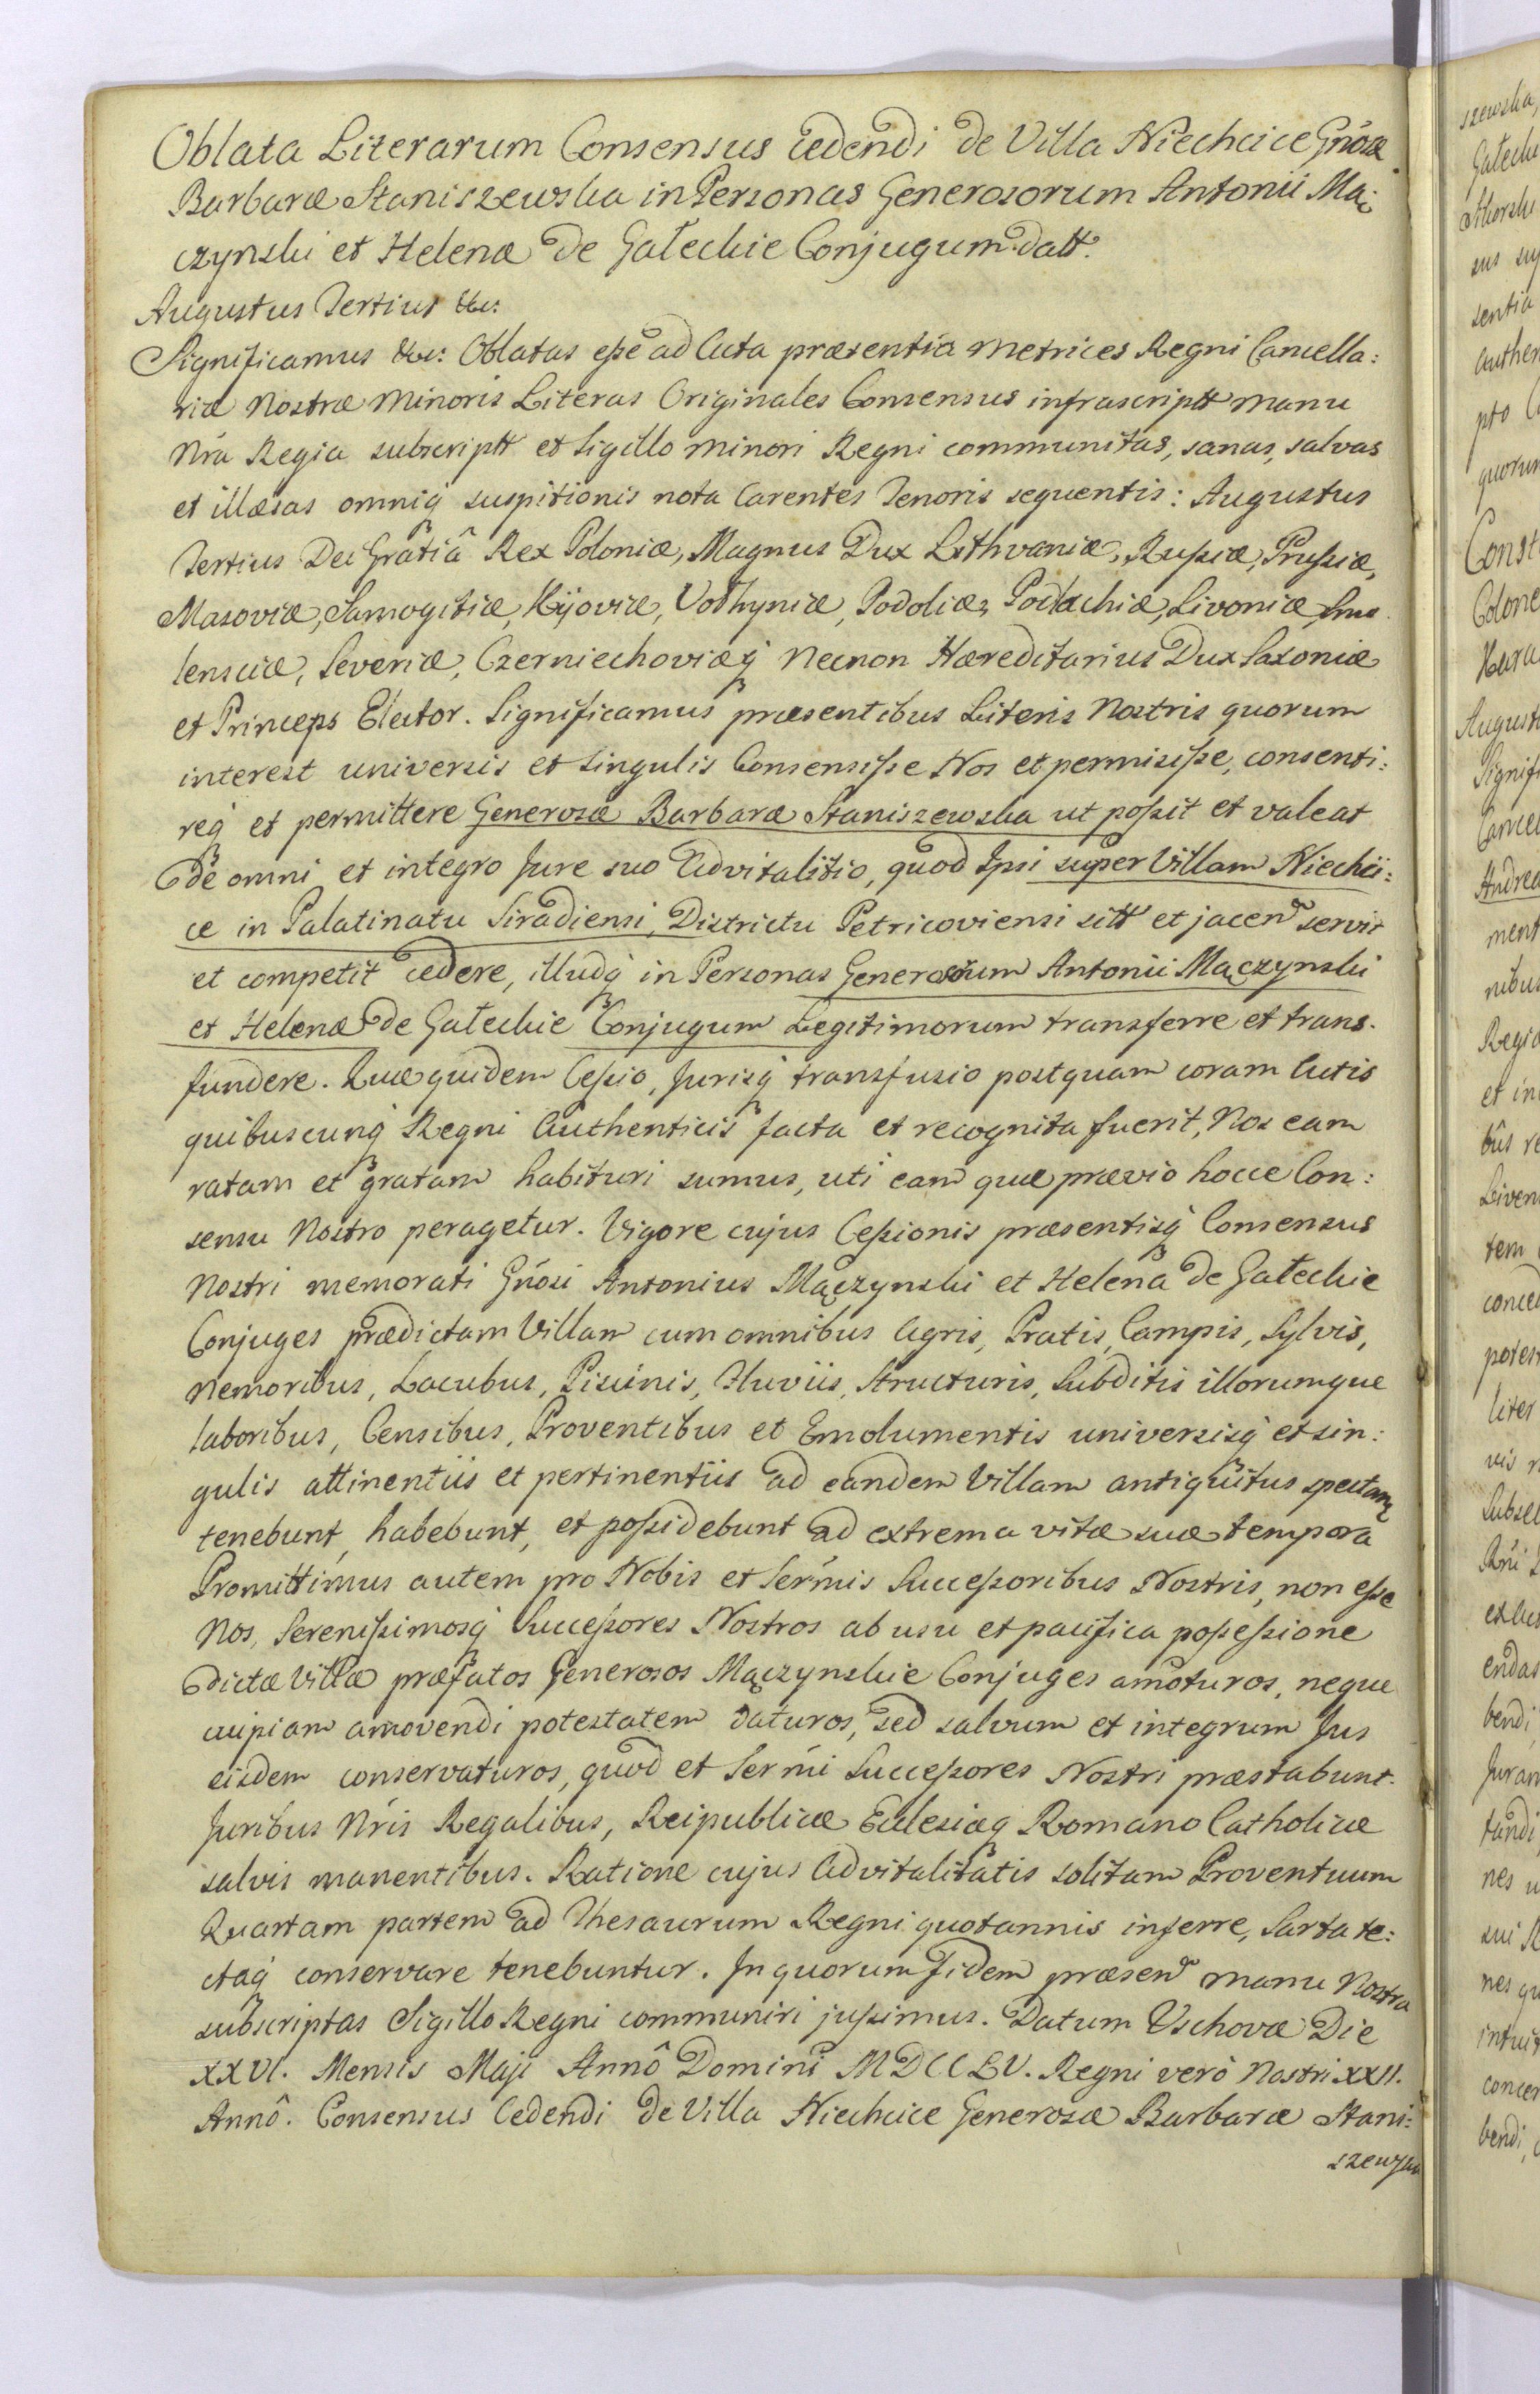 Oblata Literarum Consensus cedendi de Villa Niechcice Gnosæ
Barbaræ Staniszewska in Personas Generosorum Antonii Mą:
czynski et Helenæ de Gałeckie Conjugum datt.
Augustus Tertius &c:
Significamus &c: Oblatas eße ad Acta præsentia Metrices Regni Cancella:
riæ Nostræ Minoris Literas Originales Consensus infrascriptt manu
Nra Regia subscriptt et Sigillo minori Regni communitas, sanas, salvas
et illæsas omniq suspitionis nota Carentes Tenoris sequentis: Augustus
Tertius Dei Gratiâ Rex Poloniæ, Magnus Dux Lithvaniæ, Rußiæ, Prußiæ,
Masoviæ, Samogitiæ, Kijoviæ, Volhyniæ, Podoliæ, Podlachiæ, Livoniæ, Smo
lensciæ, Severiæ, Czerniechoviæq Necnon Hæreditarius Dux Saxoniæ
et Princeps Elector. Significamus præsentibus Literis Nostris quorum
interest universis et singulis Consensiße Nos et permisiße, consenti:
req et permittere Generosæ Barbaræ Staniszewska ut poßit et valeat
de omni et integro Jure suo Advitalitio, quod Ipsi super Villam Niechci:
ce in Palatinatu Siradiensi, Districtu Petricoviensi sitt et jacen servit
et competit cedere, illudq in Personas Generosorum Antonii Mączynski
et Helenæ de Gałeckie Conjugum Legitimorum transferre et trans.
fundere. Quæ quidem Ceßio, Jurisq transfusio postquam coram Actis
quibuscunq Regni Authenticis facta et recognita fuerit, Nos eam
ratam et gratam habituri sumus, uti eam quæ prævio hocce Con:
sensu Nostro peragetur. Vigore cujus Ceßionis præsentisq Consensus
Nostri memorati Gnosi Antonius Mączynski et Helena de Gałeckie
Conjuges prædictam Villam cum omnibus Agris, Pratis, Campis, Sylvis,
Nemoribus, Lacubus, Piscinis, Fluviis, Structuris, Subditis illorumque
laboribus, Censibus, Proventibus et Emolumentis universisq et sin:
gulis attinentiis et pertinentiis ad eandem Villam antiquitus spectan
tenebunt, habebunt, et poßidebunt ad extrema vitæ suæ tempora
Promittimus autem pro Nobis et Sermis Succeßoribus Nostris, non eße
Nos, Serenißimosq Succeßores Nostros ab usu et pacifica poßeßione
dictæ Villæ præfatos Generosos Mączynskie Conjuges amoturos, neque
cuipiam amovendi potestatem daturos, sed salvum et integrum Jus
eisdem conservaturos, quod et Sermi Succeßores Nostri præstabunt.
Juribus Nris Regalibus, Reipublicæ Ecclesiæq Romano Catholicæ
salvis manentibus. Ratione cujus Advitalitatis solitam Proventuum
Quartam partem ad Thesaurum Regni quotannis inferre, Sarta te:
ctaq conservare tenebuntur. In quorum Fidem præsen manu Nostra
subscriptas Sigillo Regni communiri jußimus. Datum Vschovæ Die
XXVI. Mensis Maji Annô Domini MDCCLV. Regni verò Nostri XXII.
Annô. Consensus Cedendi de Villa Niechcice Generosæ Barbaræ Stani:
szewska